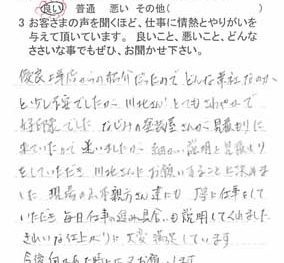 良い 普通 悪い その他（
3 お客さまの声を聞くほど、仕事に情熱とやりがいを
与えて頂いています。良いこと、悪いこと、どんな
ささいな事でもぜひ、お聞かせ下さい。
優良工事店からの紹介だったので どんな業社なのか
と少し不安でしたが 川北さんがとてもさわやかで
好印象でした なじみの塗装屋さんから見積もりに
来ていたので 迷いましたが 細かい説明と見積もり
をしていただき 川北さんにお願いすることに決めま
した 現場のお手 親方さん達にも 丁寧に仕事をして
いただき 毎日仕事の進み具合 も説明してくれました
きれいな仕上がりに 大変満足しています
お願いします